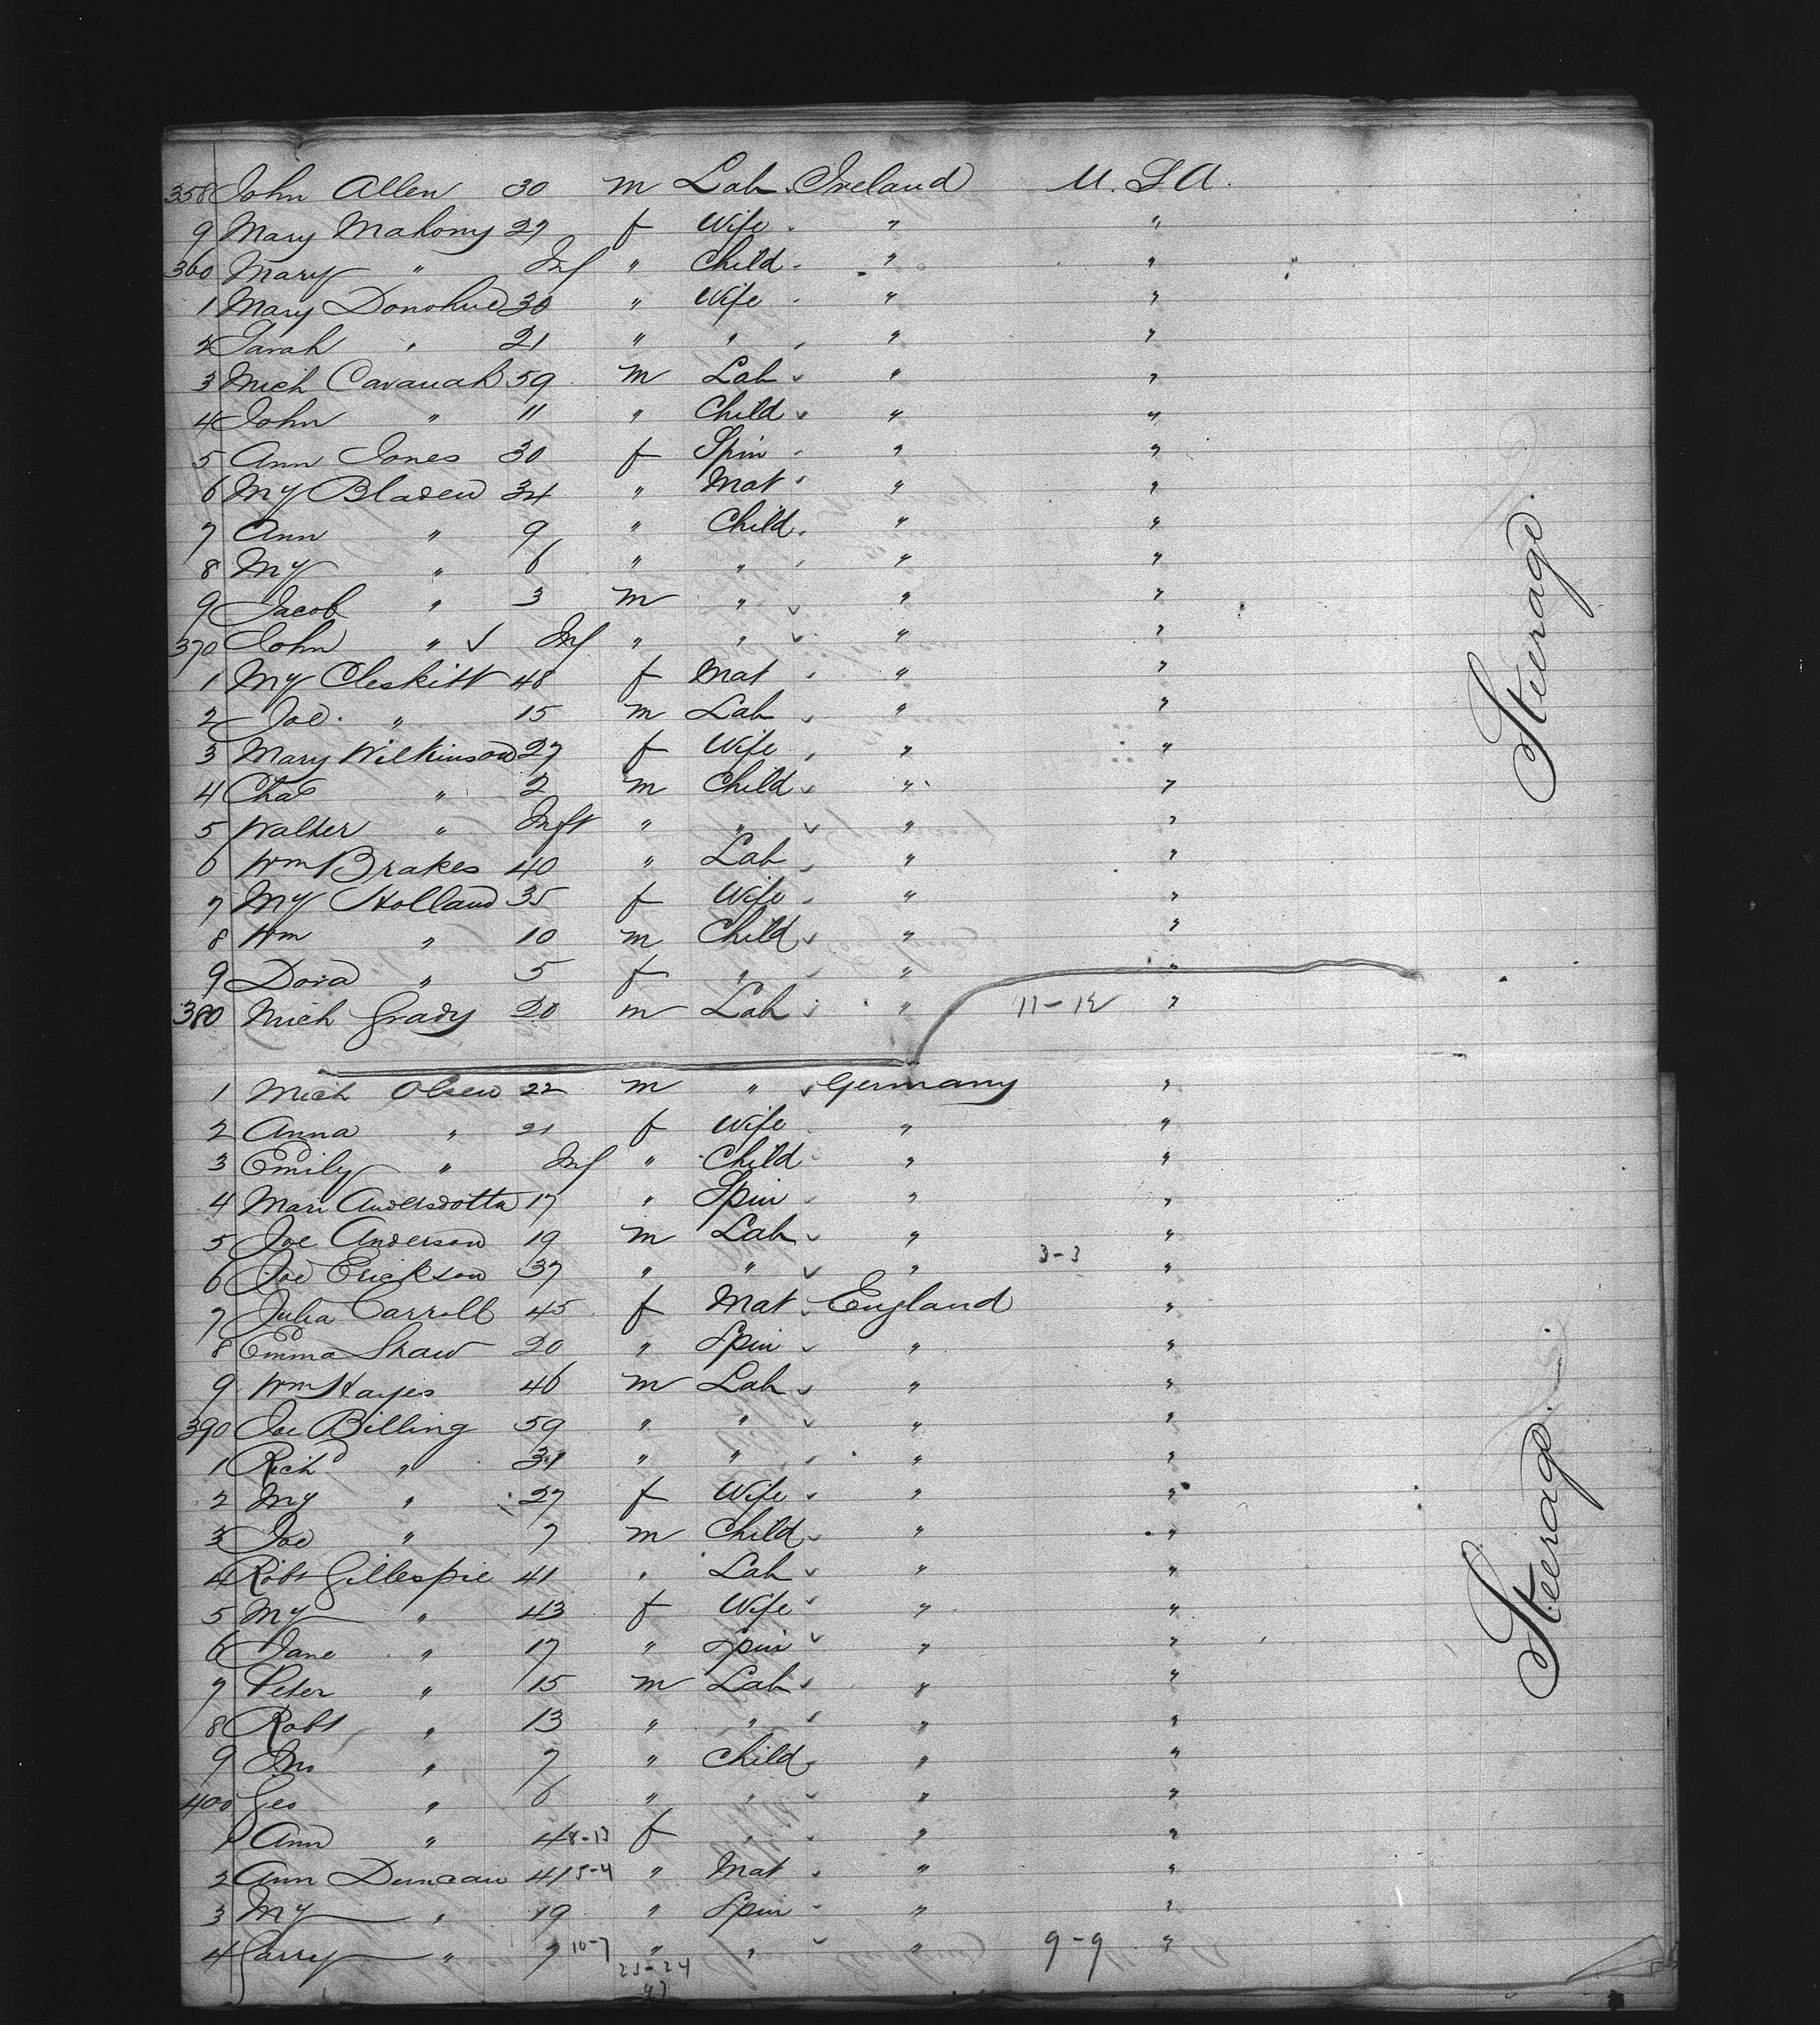 358 John Allen 30 m Lab Ireland U.S.A.
9 Mary Mahony 27 f Wife " "
360 Mary " Inf " Child " "
1 Mary Donohue 30 " Wife " "
2 Sarah " 21 " " " "
3 Mich Cavanah 59 m Lab " "
4 John " 11 " Child " "
5 Ann Jones 30 f Spin " "
6 My Bladen 34 " Mat " "
7 Ann " 9 " Child " "
8 My " 6 " " " "
9 Jacob " 3 m " " "
370 John " Inf " " " "
1 My Cleskitt 48 f Mat " "
2 Joe " 15 m Lab " "
3 Mary Wilkinson 27 f Wife " "
4 Chas " 2 m Child " "
5 Walter " Inft " " " "
6 Wm Brakes 40 " Lab " "
7 My Holland 35 f Wife " "
8 Wm " 10 m Child " "
9 Dora " 5 f " " "
380 Mich Grady 20 m Lab " 11-12 "
1 Mich Olsen 22 m " Germany "
2 Anna " 21 f Wife " "
3 Emily " Inf " Child " "
4 Mari Andersdotta 17 " Spin " "
5 Joe Anderson 19 m Lab " "
6 Joe Erickson 37 " " " 3-3 "
7 Julia Carroll 45 f Mat England "
8 Emma Shaw 20 " Spin " "
9 Wm Hayes 46 m Lab " "
390 Joe Billing 59 " " " "
1 Rich " 31 " " " "
2 My " 27 f Wife " "
3 Joe " 7 m Child " "
4 Robt Gillespie 41 " Lab " "
5 My " 43 f Wife " "
6 Jane " 17 " Spin " "
7 Peter " 15 m Lab " "
8 Robt " 13 " " " "
9 Jno " 7 " Child " "
400 Geo " 6 " " " "
1 Ann " 4 8-13 f " " "
2 Ann Duncan 41 5-4 " Mat " "
3 My " 19 " Spin " "
4 Carry " 7 10-7 " " " 9-9 "
23-24
47
Steerage.
Steerage.